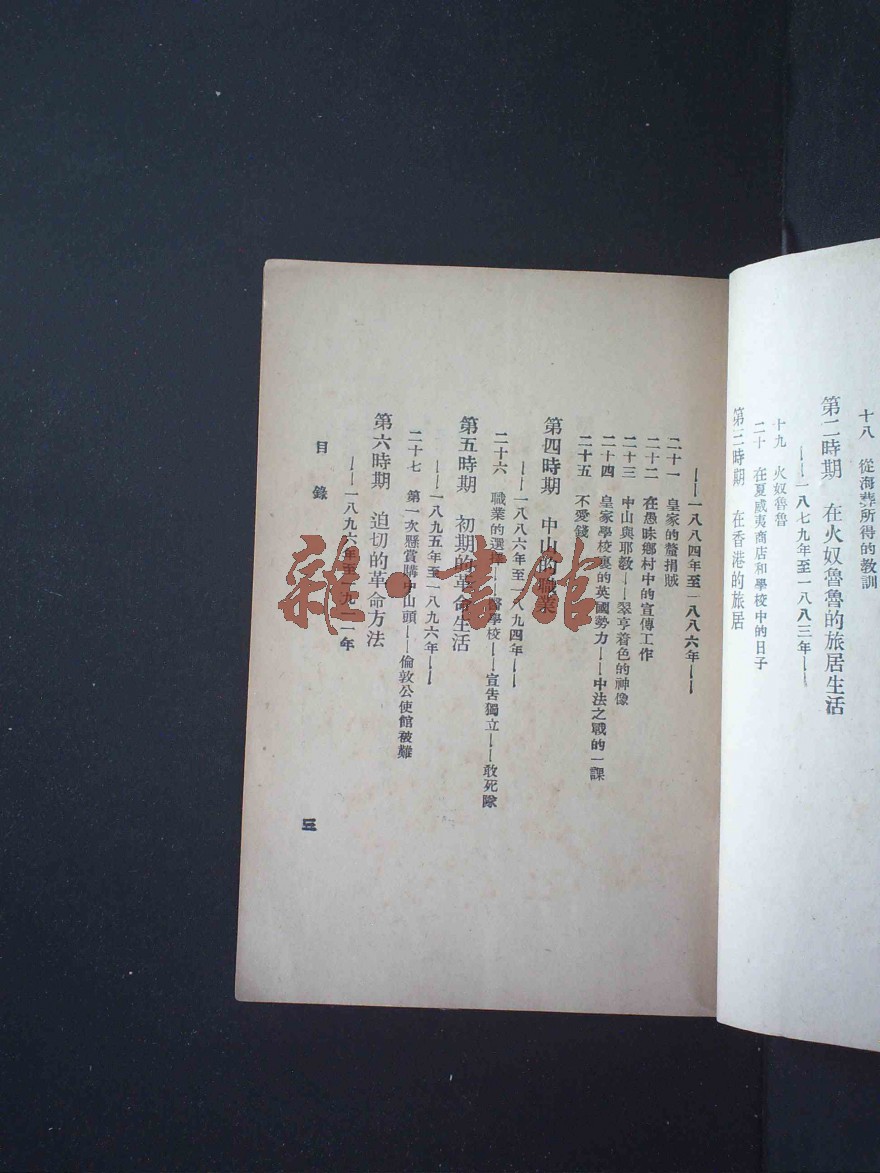 十八　從海葬所得的教訓
第二時期　在火奴魯魯的旅居生活
——一八七九年至一八八三年——
十九　火奴魯魯
二十　在夏威夷商店和學校中的日子
第三時期　在香港的旅居
——一八八四年至一八八六年——
二十一　皇家的釐捐賊
二十二　在愚昧鄉村中的宣傳工作
二十三　中山與耶教——翠亨着色的神像
二十四　皇家學校裏的英國勢力——中法之戰的一課
二十五　不愛錢
第四時期　中山的職業
——一八八六年至一八九四年——
二十六　職業的選擇——醫學校——宣告獨立——敢死隊
第五時期　初期的革命生活
——一八九五年至一八九六年——
二十七　第一次懸賞購中山頭——倫敦公使館被難
第六時期　迫切的革命方法
——一八九六年至一九一一年
目錄
三
雜·書館